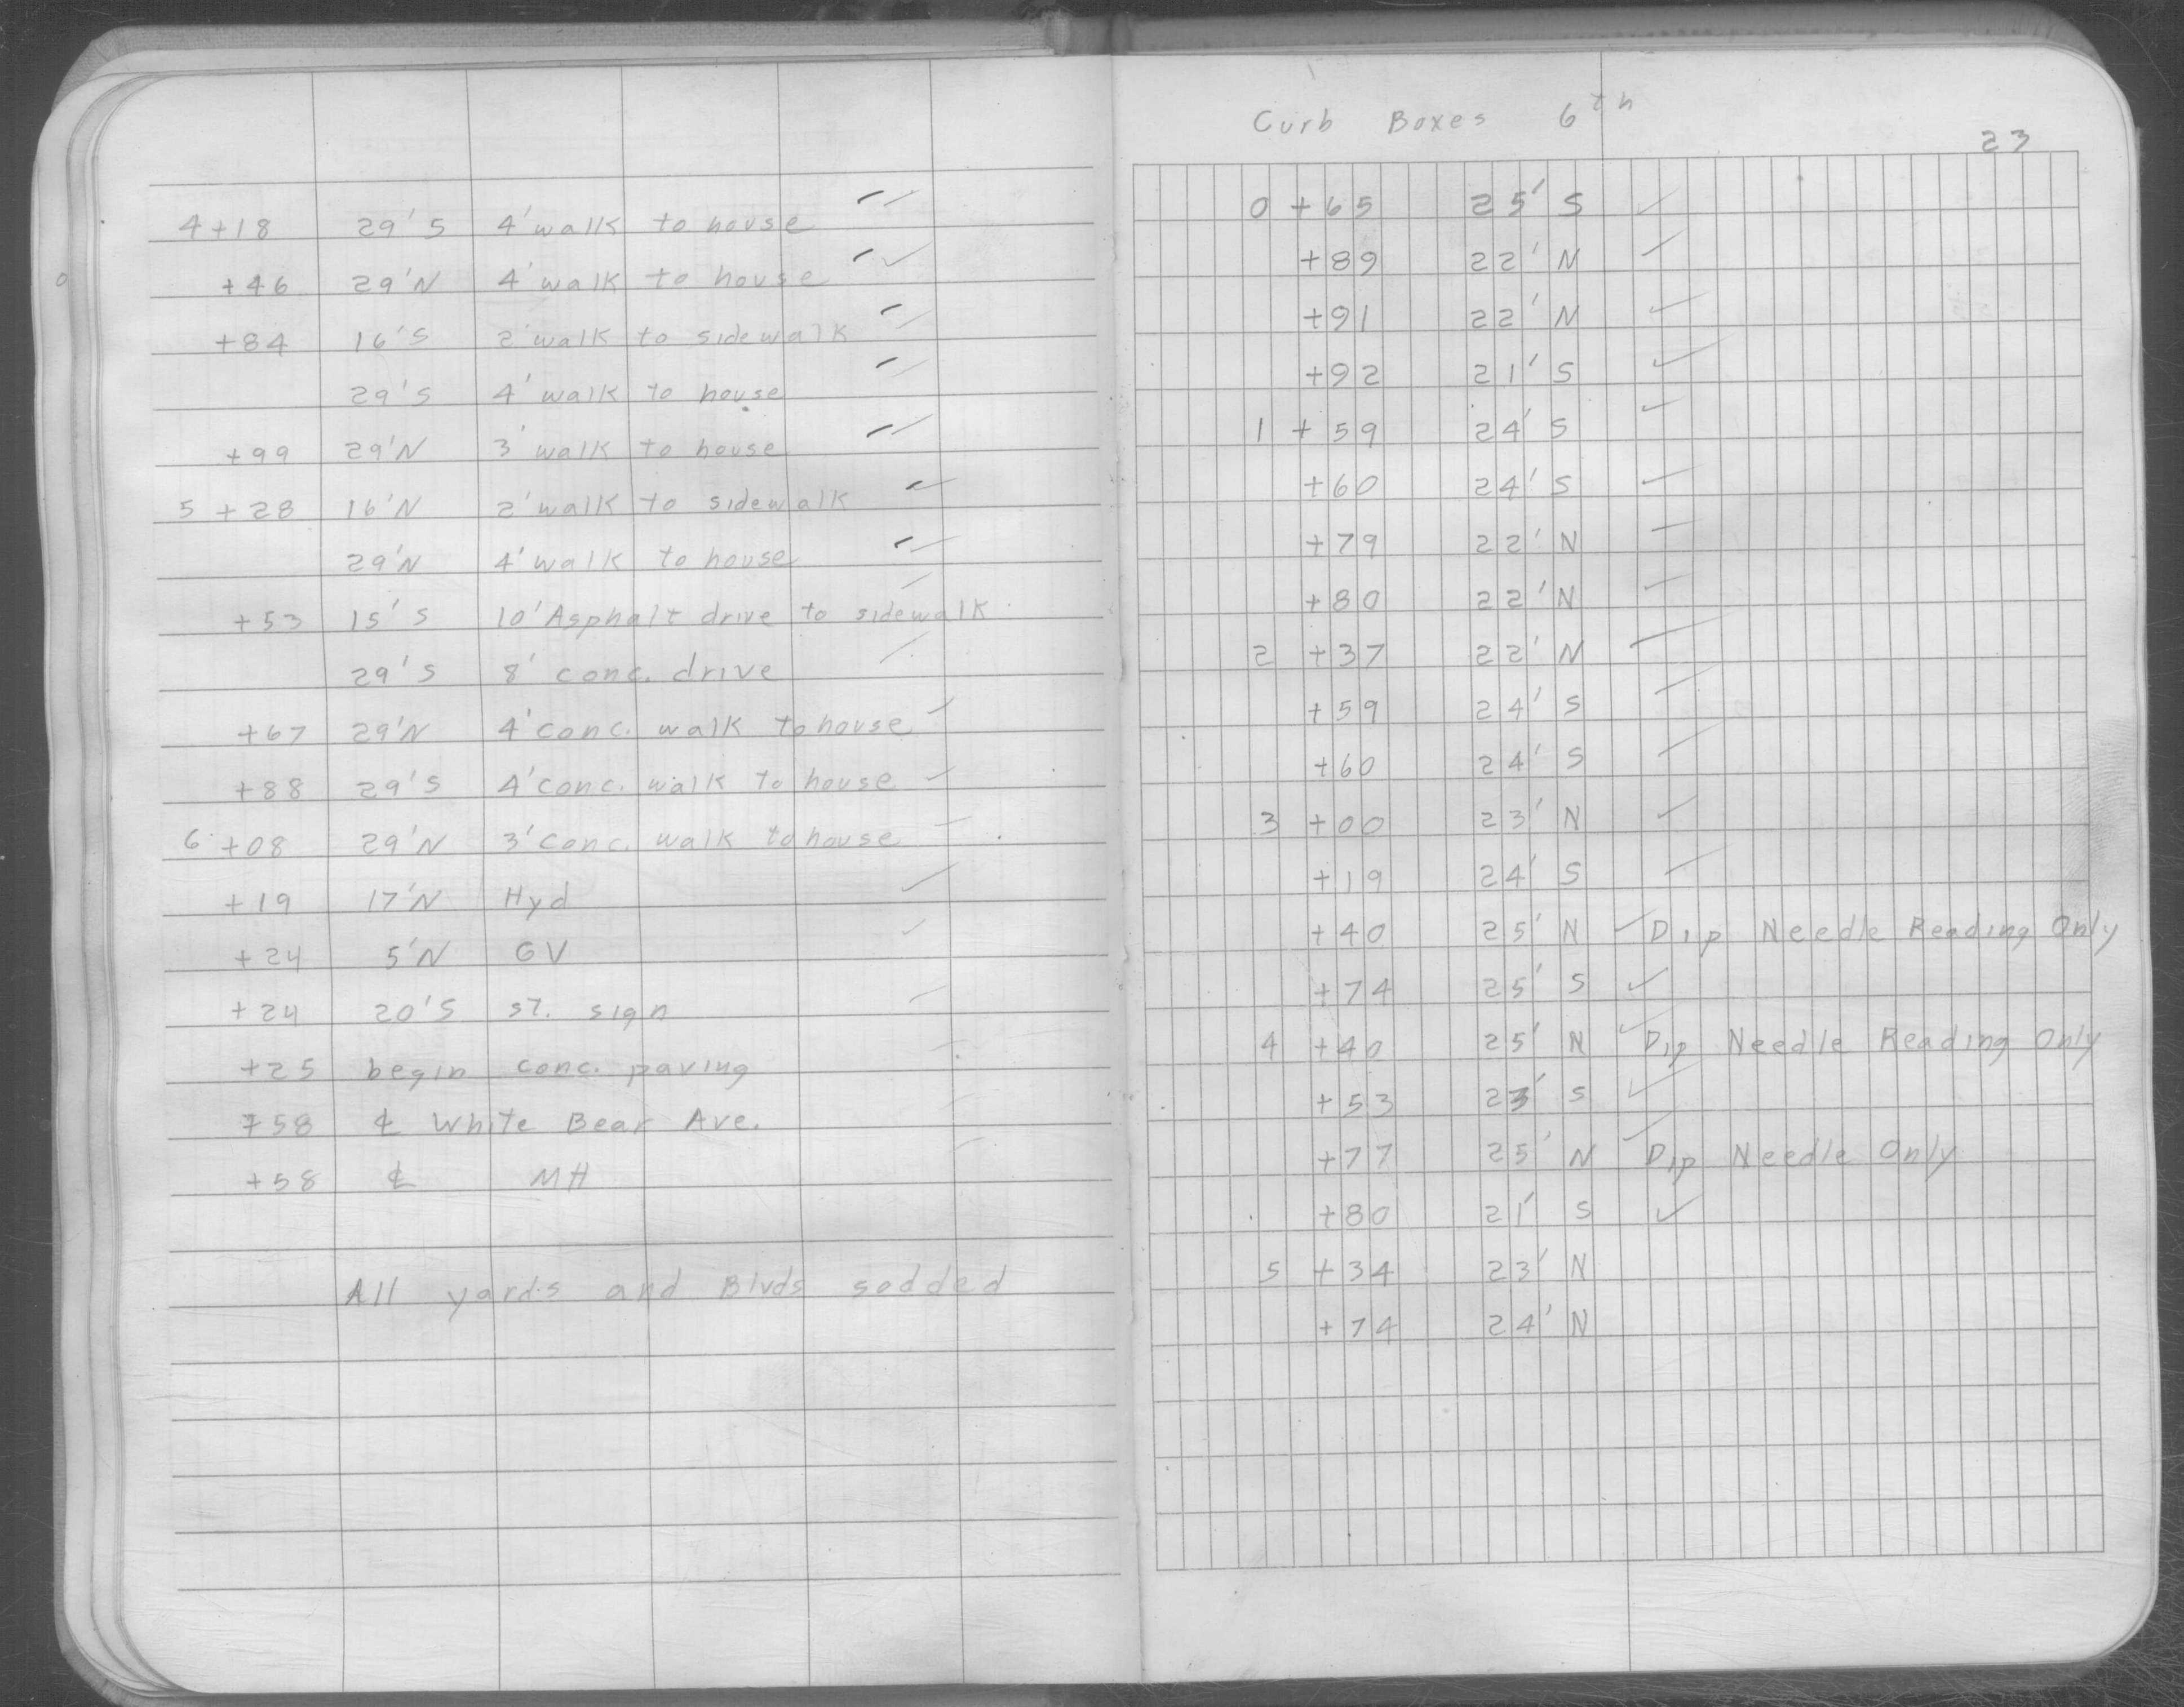 4+18 29'S 4' walk to house ✓✓
+46 29'N 4' walk to house ✓✓
+84 16'S 2' walk to sidewalk ✓✓
29'S 4' walk to house ✓✓
+99 29'N 3' walk to house ✓✓
5+28 16'N 2' walk to sidewalk ✓
29'N 4' walk to house ✓✓
+53 15'S 10' Asphalt drive to sidewalk ✓
29'S 8' conc. drive ✓
+67 29'N 4' conc. walk to house ✓
+88 29'S 4' conc. walk to house ✓
6+08 29'N 3' conc. walk to house ✓
+19 17'N Hyd ✓
+24 5'N GV ✓
+24 20'S st. sign ✓
+25 begin conc. paving ✓
+58 ℄ White Bear Ave. ✓
+58 ℄ MH ✓
All yards and Blvds sodded
Curb Boxes 6th
23
0+65 25' S ✓
+89 22' N ✓
+91 22' N ✓
+92 21' S ✓
1+59 24' S ✓
+60 24' S ✓
+79 22' N ✓
+80 22' N ✓
2+37 22' N ✓
+59 24' S ✓
+60 24' S ✓
3+00 23' N ✓
+19 24' S ✓
+40 25' N ✓ Dip Needle Reading Only
+74 25' S ✓
4+40 25' N ✓ Dip Needle Reading Only
+53 23' S ✓
+77 25' N ✓ Dip Needle Only
+80 21' S ✓
5+34 23' N
+74 24' N